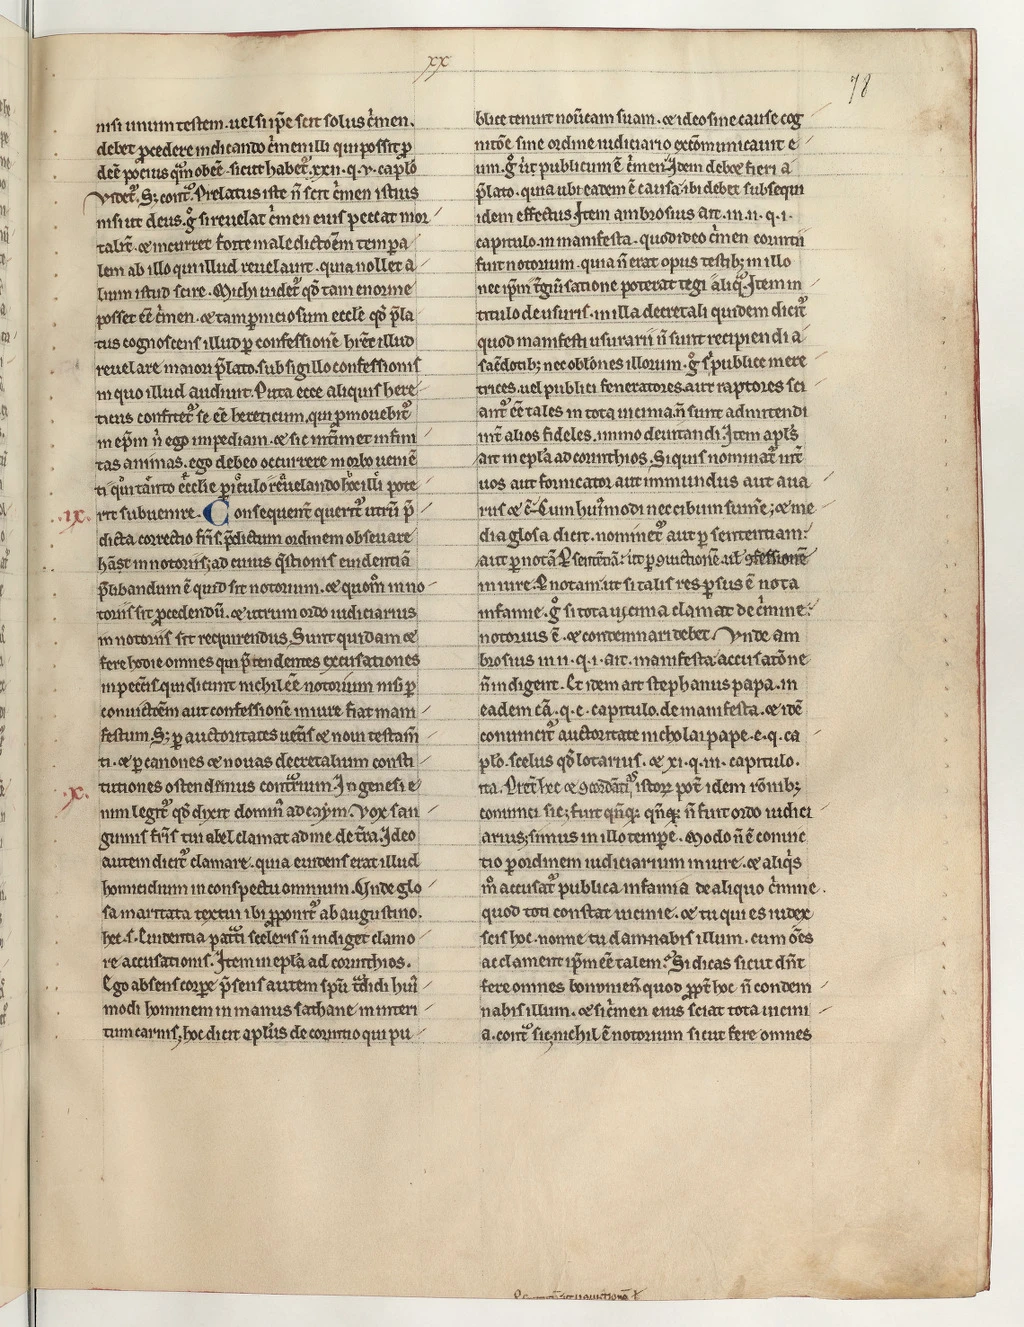 xx
78
nisi unum testem. uel si ip̄e scit solus c̓men.
debet ꝓcedere indicando c̓men illi qui possit ꝓ
deē pocius qͣm obeē. sicut habet᷑. xxii. q. v. caplo
Videt᷑. S; cont᷑. Prelatus iste ñ scit c̓men istius
nisi ut deus. g̊ si reuelat c̓men eius peccat mor
talit᷑. ⁊ incurret forte maledictōem tempa
lem ab illo qui illud reuelauit. quia nollet a
lium istud scire. Michi uidet᷑ qd̓ tam enorme
posset eē̄ c̓men. ⁊ tam ꝑniciosum eccl̓e qd̓ p̄la
tus cognoscens illud ꝑ confessionē bn̄e illud
reuelare maiori p̄lato. sub sigillo confessionis
in quo illud audiuit. Puta ecce aliquis here
ticus confitet᷑ se eē hereticum. qui ꝓmouebit᷑
in ep̄m ñ ego impediam. ⁊ sic int̓im et infini
tas animas. ego debeo occurrere morbo ueniē
ti qͥn tanto eccl̓ie ꝑiculo reuelando hoc illi pote
.ix. rit subuenire. Consequent᷑ querit᷑ utrū p̄
dicta correctio fr̄is. p̄dictum ordinem obseruare
in notoriis; ad cuius q̄stionis euidentiā
p̄libandum ē quid sit notorium. ⁊ quom̊ in no
toriis sit ꝓcedendū. ⁊ utrum ordo iudiciarius
in notoriis sit requirendus. Sunt quidam ⁊
fere hodie omnes qui p̄tendentes excusationes
in peccīs. qui dicunt nichil eē notorium nisi ꝑ
conuictōem aut confessionē in iure fiat mani
festum. S; ꝑ auctoritates uet̓is ⁊ noui testam̄
ti. ⁊ ꝑ canones ⁊ nouas decretalium consti
.x. tutiones ostendimus contͬrium. In genesi e
nim legit᷑ qd̓ dixit domin᷒ ad caym. Vox san
guinis fr̄is tui abel clamat ad me de t̓ra. Ideo
autem dicit᷑ clamare. quia euidens erat illud
homicidium in conspectu omnium. Vnde glo
sa maritata textui ibi ꝓponit᷑ ab augustino.
hec. s. Euidentia pat̓ti sceleris ñ indiget clamo
re accusationis. Item in epl̓a ad corinthios.
Ego absens corpe p̄sens autem sp̄u t̓didi hui᷒
modi hominem in manus sathane in interi
tum carnis; hoc dicit apl̓us de corintio qui pu
blice tenuit nouercam suam. ⁊ ideo sine cause cog
nitōe sine ordine iudiciario excōmunicauit e
um. g̊ ut publicum ē c̓men. Item debet fieri a
p̄lato. quia ubi eadem ē causa. ibi debet subsequi
idem effectus. Item ambrosius ait. in. ii. q. i.
capitulo. in manifesta. quod ideo c̓men corintii
fuit notorium. quia ñ erat opus testib; in illo
nec ip̄m t̓giuersatione poterat tegi aliqͣ. Item in
titulo de usuris. in illa decretali quidem dicit᷑
quod manifesti usurarii ñ sunt recipiendi a
sac̓dotib; nec obl̓ones illorum. g̊ s᷑ publice mere
trices. uel publici feneratores. aut raptores sci
ant᷑ eē tales in tota uicinia. ñ sunt admittendi
int̓ alios fideles. immo deuitandi. Item apl̓s
ait in epl̓a ad corinthios. Si quis nominat᷑ int̓
uos aut fornicator aut immundus aut aua
rus ⁊ c̄. Cum hui᷒modi nec cibum sum̄e; ⁊ me
dia glosa dicit. nominet᷑ aut ꝑ sententiam.
aut ꝑ notā. Ꝑ sententiā: ut ꝑ ꝯuictionē. ul̓ ꝯfessionē
in iure. Ꝑ notam. ut si talis res ꝑsus ē nota
infamie. g̊ si tota uicinia clamat de c̓mine.
notorius ē. ⁊ contemnari debet. Vnde am
brosius in. ii. q. i. ait. manifesta accusatōne
ñ indigent. Et idem ait stephanus papa. in
eadem cā. q. e. capitulo. de manifesta. ⁊ idē
conuincit᷑ auctoritate nicholai pape. e. q. ca
pl̓o. scelus qd̓ lotarius. ⁊ xi. q. iii. capitulo.
ita. Pret̓ hec istorum pot̓ idem rōnib;
conuinci sic; fuit qn̄q; qn̄q; ñ fuit ordo iudici
arius; simus in illo tempe. Modo ñ ē conuic
tio ꝑ ordinem iudiciarium in iure. ⁊ aliqͥs
m̊ accusat᷑ publica infamia de aliquo c̓mine.
quod toti constat uicinie. ⁊ tu qui es iudex
scis hoc. nonne tu damnabis illum. cum oēs
acclament ip̄m eē talem. Si dicas sicut dn̄t
fere omnes bononien̄. quod ꝓpt̓ hoc ñ condem
nabis illum. ⁊ si c̓men eius sciat tota uicini
a. cont᷑ sic; nichil ē notorium sicut fere omnes